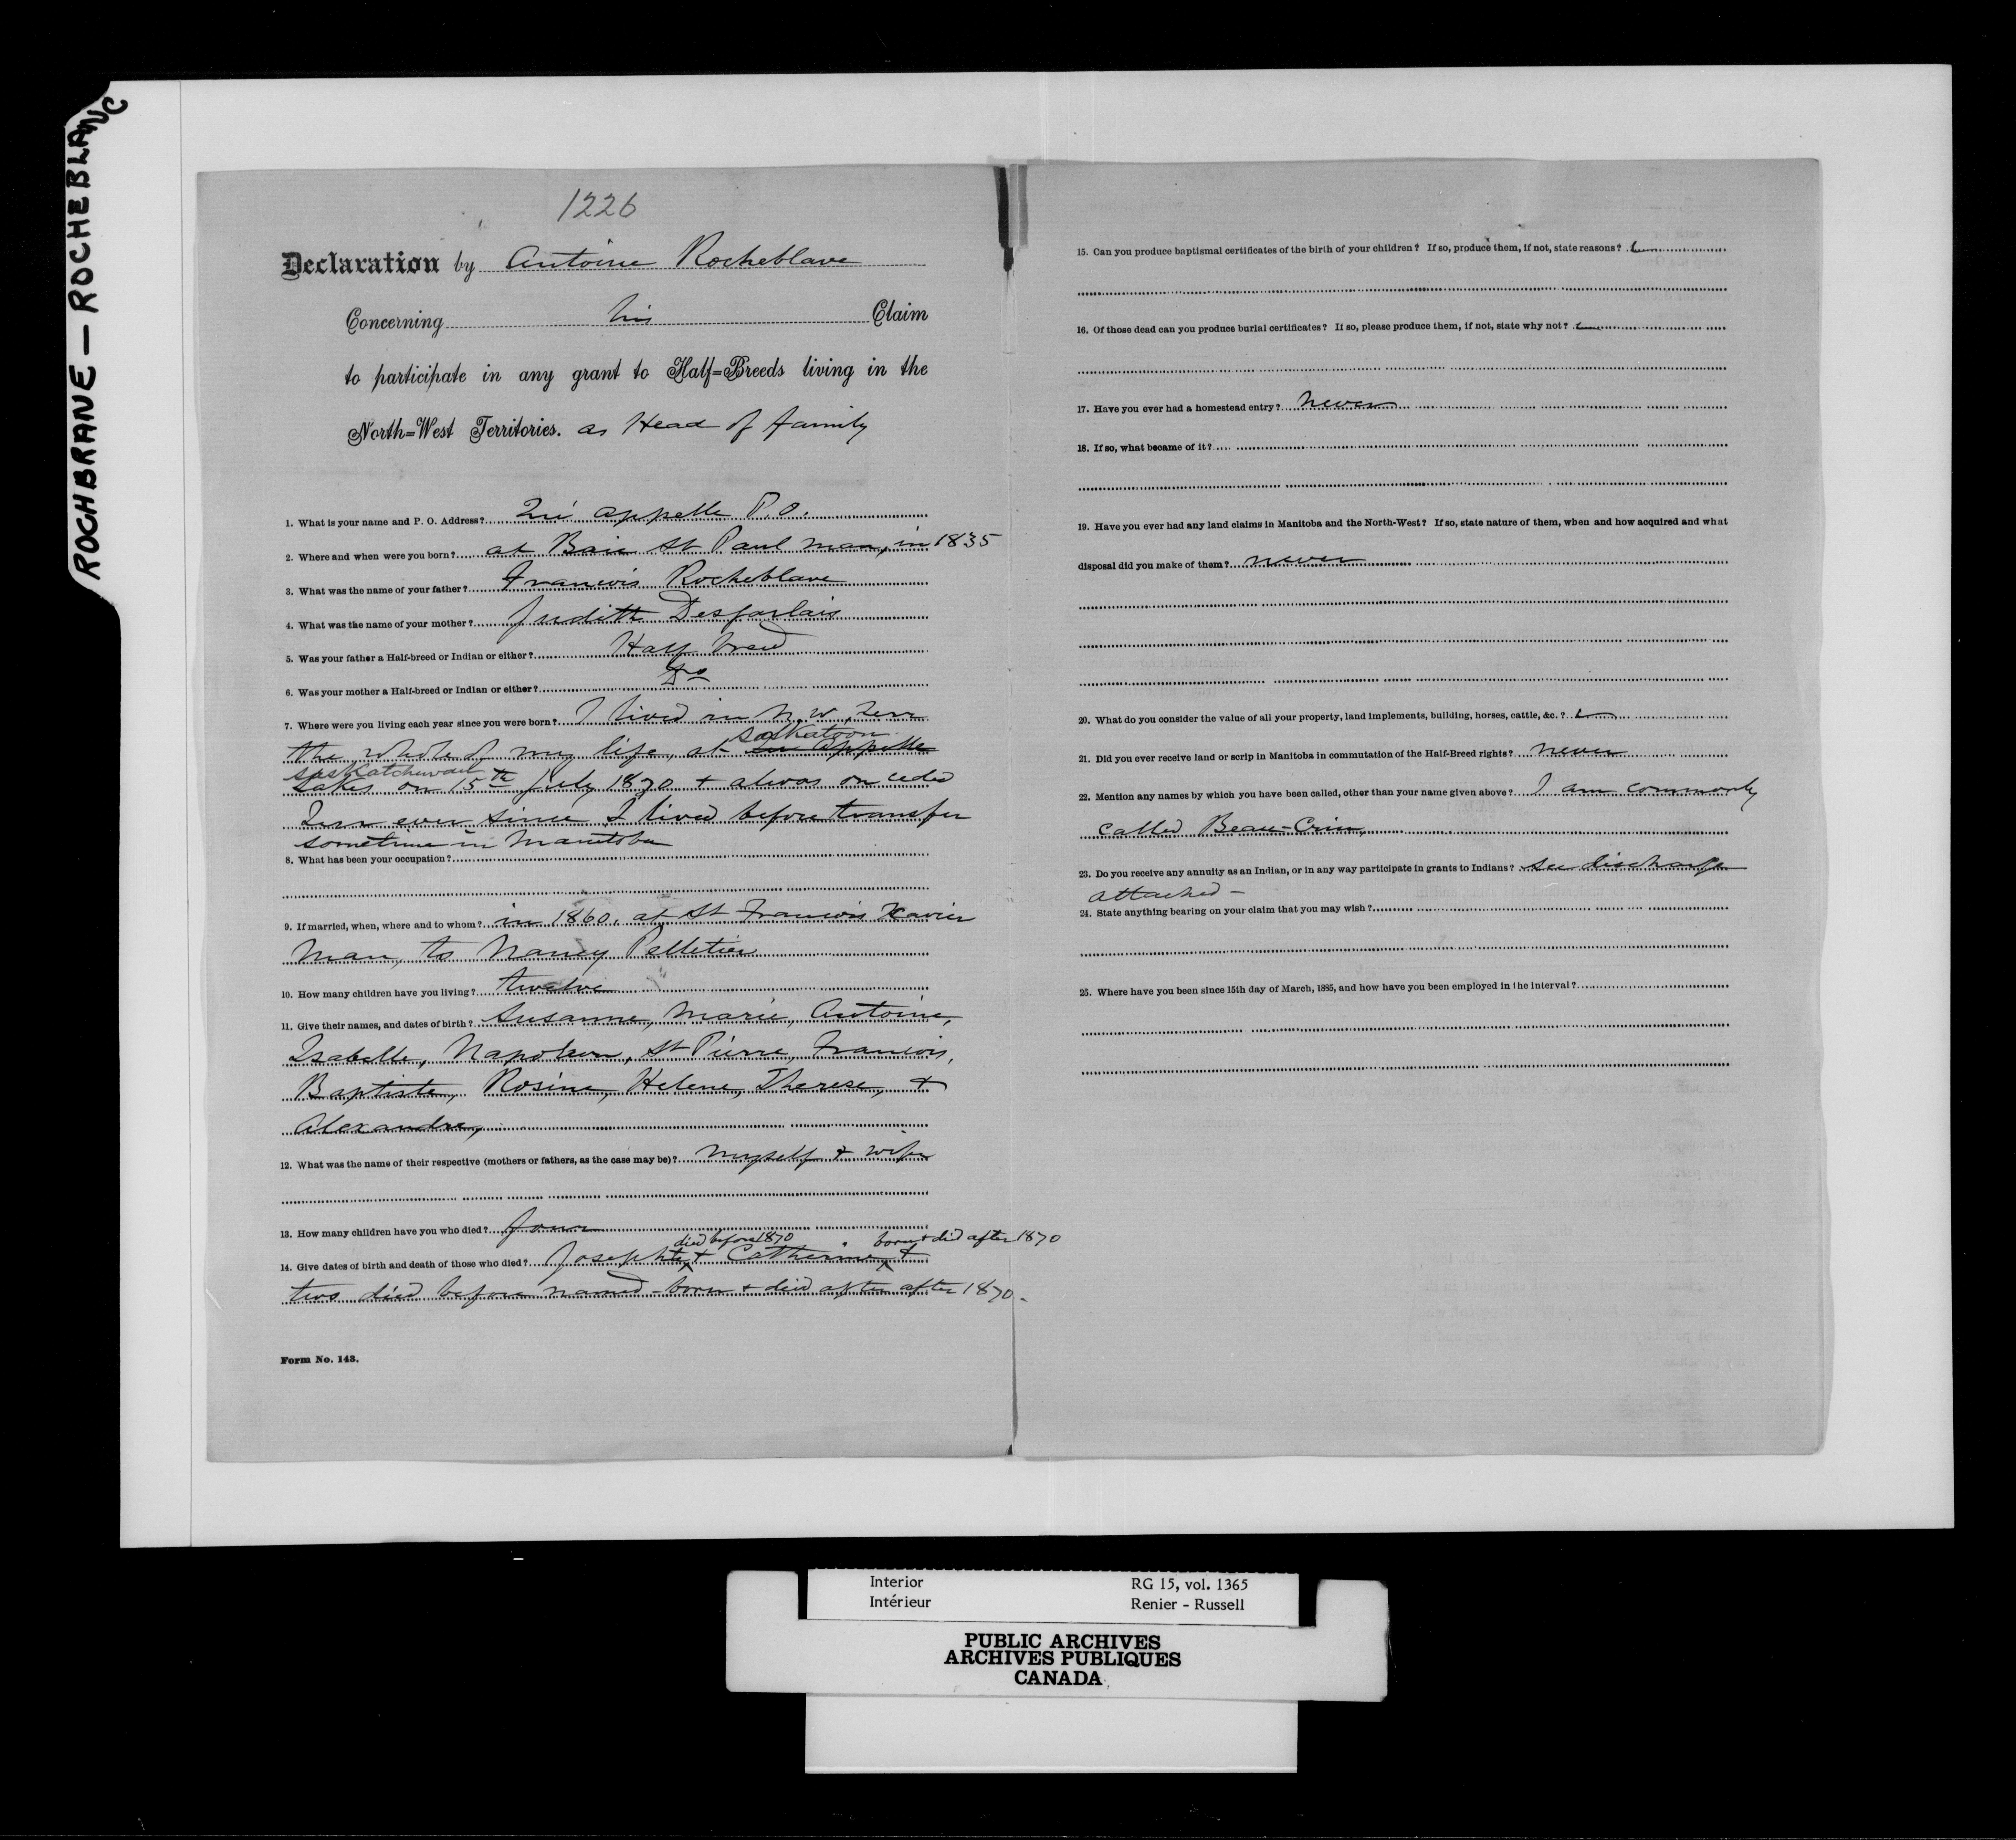 ROCHBRANE — ROCHEBLANC
1226
Declaration by Antoine Rocheblave
Concerning his Claim
to participate in any grant to Half=Breeds living in the
North=West Territories. as Head of family
1. What is your name and P. O. Address? Qui appelle P.O.
2. Where and when were you born? at Baie St Paul Man, in 1835
3. What was the name of your father? Francois Rocheblave
4. What was the name of your mother? Judith Desjarlais
5. Was your father a Half-breed or Indian or either? Half breed
6. Was your mother a Half-breed or Indian or either? Do
7. Where were you living each year since you were born? I lived in N. W. Terr
Saskatoon
the whole of my life, at Qu'Appelle
Saskatchewan
Lakes on 15th July 1870 + always on ceded
Terr ever since I lived before transfer
sometime in Manitoba
8. What has been your occupation?
9. If married, when, where and to whom? in 1860. at St Francois Xavier
Man, to Nancy Pelletier
10. How many children have you living? twelve
11. Give their names, and dates of birth? Susanne, Marie, Antoine,
Isabelle, Napoleon, St Pierre, Francois,
Baptiste, Rosine, Helene, Therese, +
Alexandre,
12. What was the name of their respective (mothers or fathers, as the case may be)? Myself + wife
13. How many children have you who died? four
died before 1870 born + did after 1870
14. Give dates of birth and death of those who died? Josephte + Catherine +
two died before named - born + died after after 1870.
Form No. 143.
15. Can you produce baptismal certificates of the birth of your children? If so, produce them, if not, state reasons?
16. Of those dead can you produce burial certificates? If so, please produce them, if not, state why not?
17. Have you ever had a homestead entry? Never
18. If so, what became of it?
19. Have you ever had any land claims in Manitoba and the North-West? If so, state nature of them, when and how acquired and what
disposal did you make of them? never
20. What do you consider the value of all your property, land implements, building, horses, cattle, &c.?
21. Did you ever receive land or scrip in Manitoba in commutation of the Half-Breed rights? never
22. Mention any names by which you have been called, other than your name given above? I am commonly
called Beau-Crin,
23. Do you receive any annuity as an Indian, or in any way participate in grants to Indians? See discharge
attached -
24. State anything bearing on your claim that you may wish?
25. Where have you been since 15th day of March, 1885, and how have you been employed in the interval?
Interior RG 15, vol. 1365
Intérieur Renier - Russell
PUBLIC ARCHIVES
ARCHIVES PUBLIQUES
CANADA